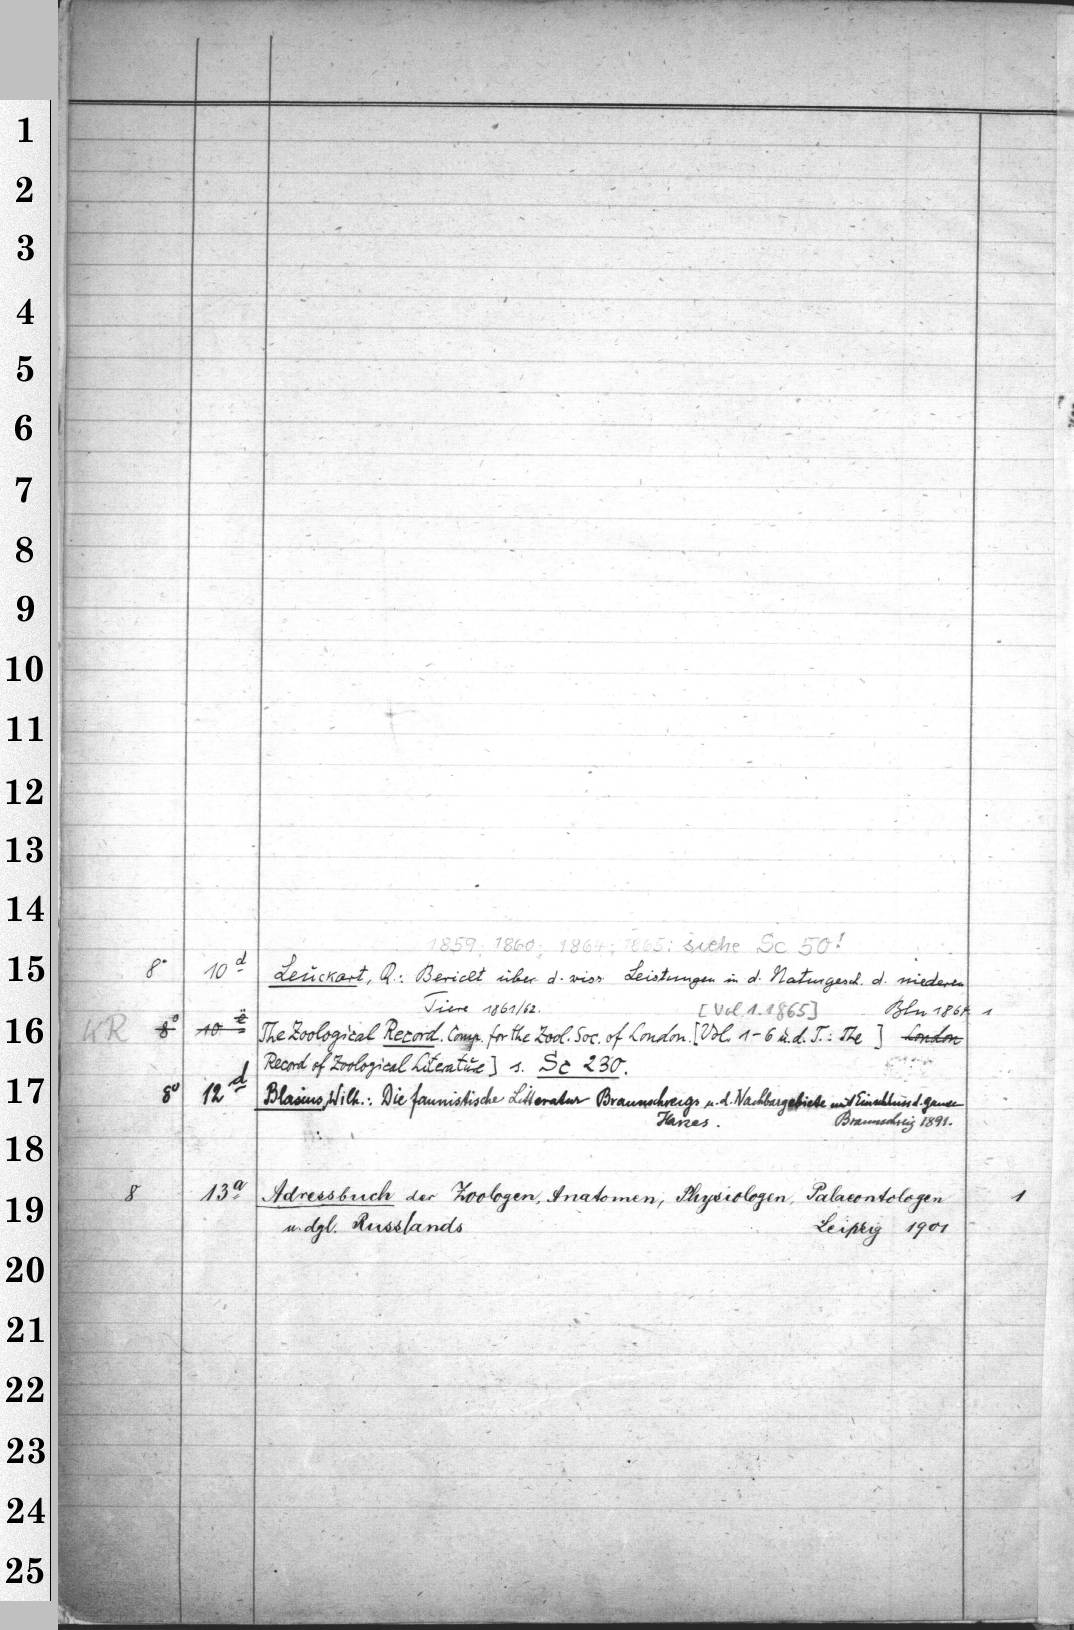 1
2
3
4
5
6
7
8
9
10
11
12
13
14
1859, 1860, 1864, 1865: siehe Sc 50!
15 8° 10 d Leuckart, R.: Bericht über d. wiss. Leistungen in d. Naturgesch. d. niederen
Tiere 1861/62. [Vol. 1. 1865] Bln 186 1
16 KR 8° 10 The Zoological Record. Comp. for the Zool. Soc. of London. [Vol. 1-6 u. d. T.: The ] London
Record of Zoological Literature] s. Sc 230.
17 8° 12 d Blasius, Wilh.: Die faunistische Litteratur Braunschweigs u. d. Nachbargebiete mit Einschluss d. ganzen
Harzes. Braunschweig 1891.
18
19 8 13 a Adressbuch der Zoologen, Anatomen, Physiologen, Palaeontologen 1
u. dgl. Russlands Leipzig 1901
20
21
22
23
24
25